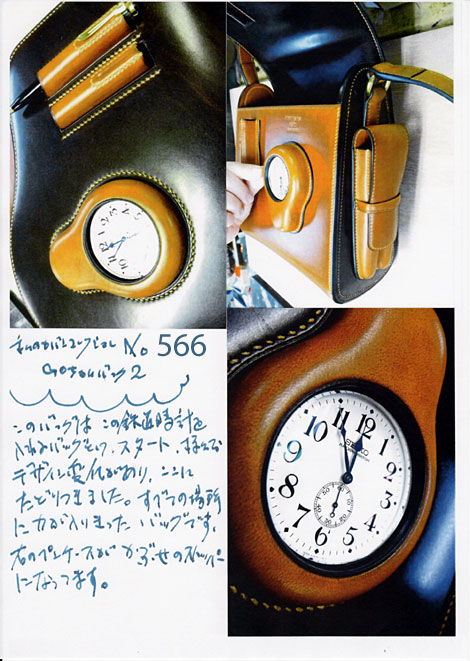 No 566
ショルダーバッグ 2
このバッグは この鉄道時計を
入れるバッグとして、スタート、様々な
デザイン変化があり、ここに
たどりつきました。すべての場所
に力が入りまくった バッグです。
右のペンケースが かぶせのストッパー
になってます。
12
1
2
3
4
5
6
7
8
9
10
11
SEIKO